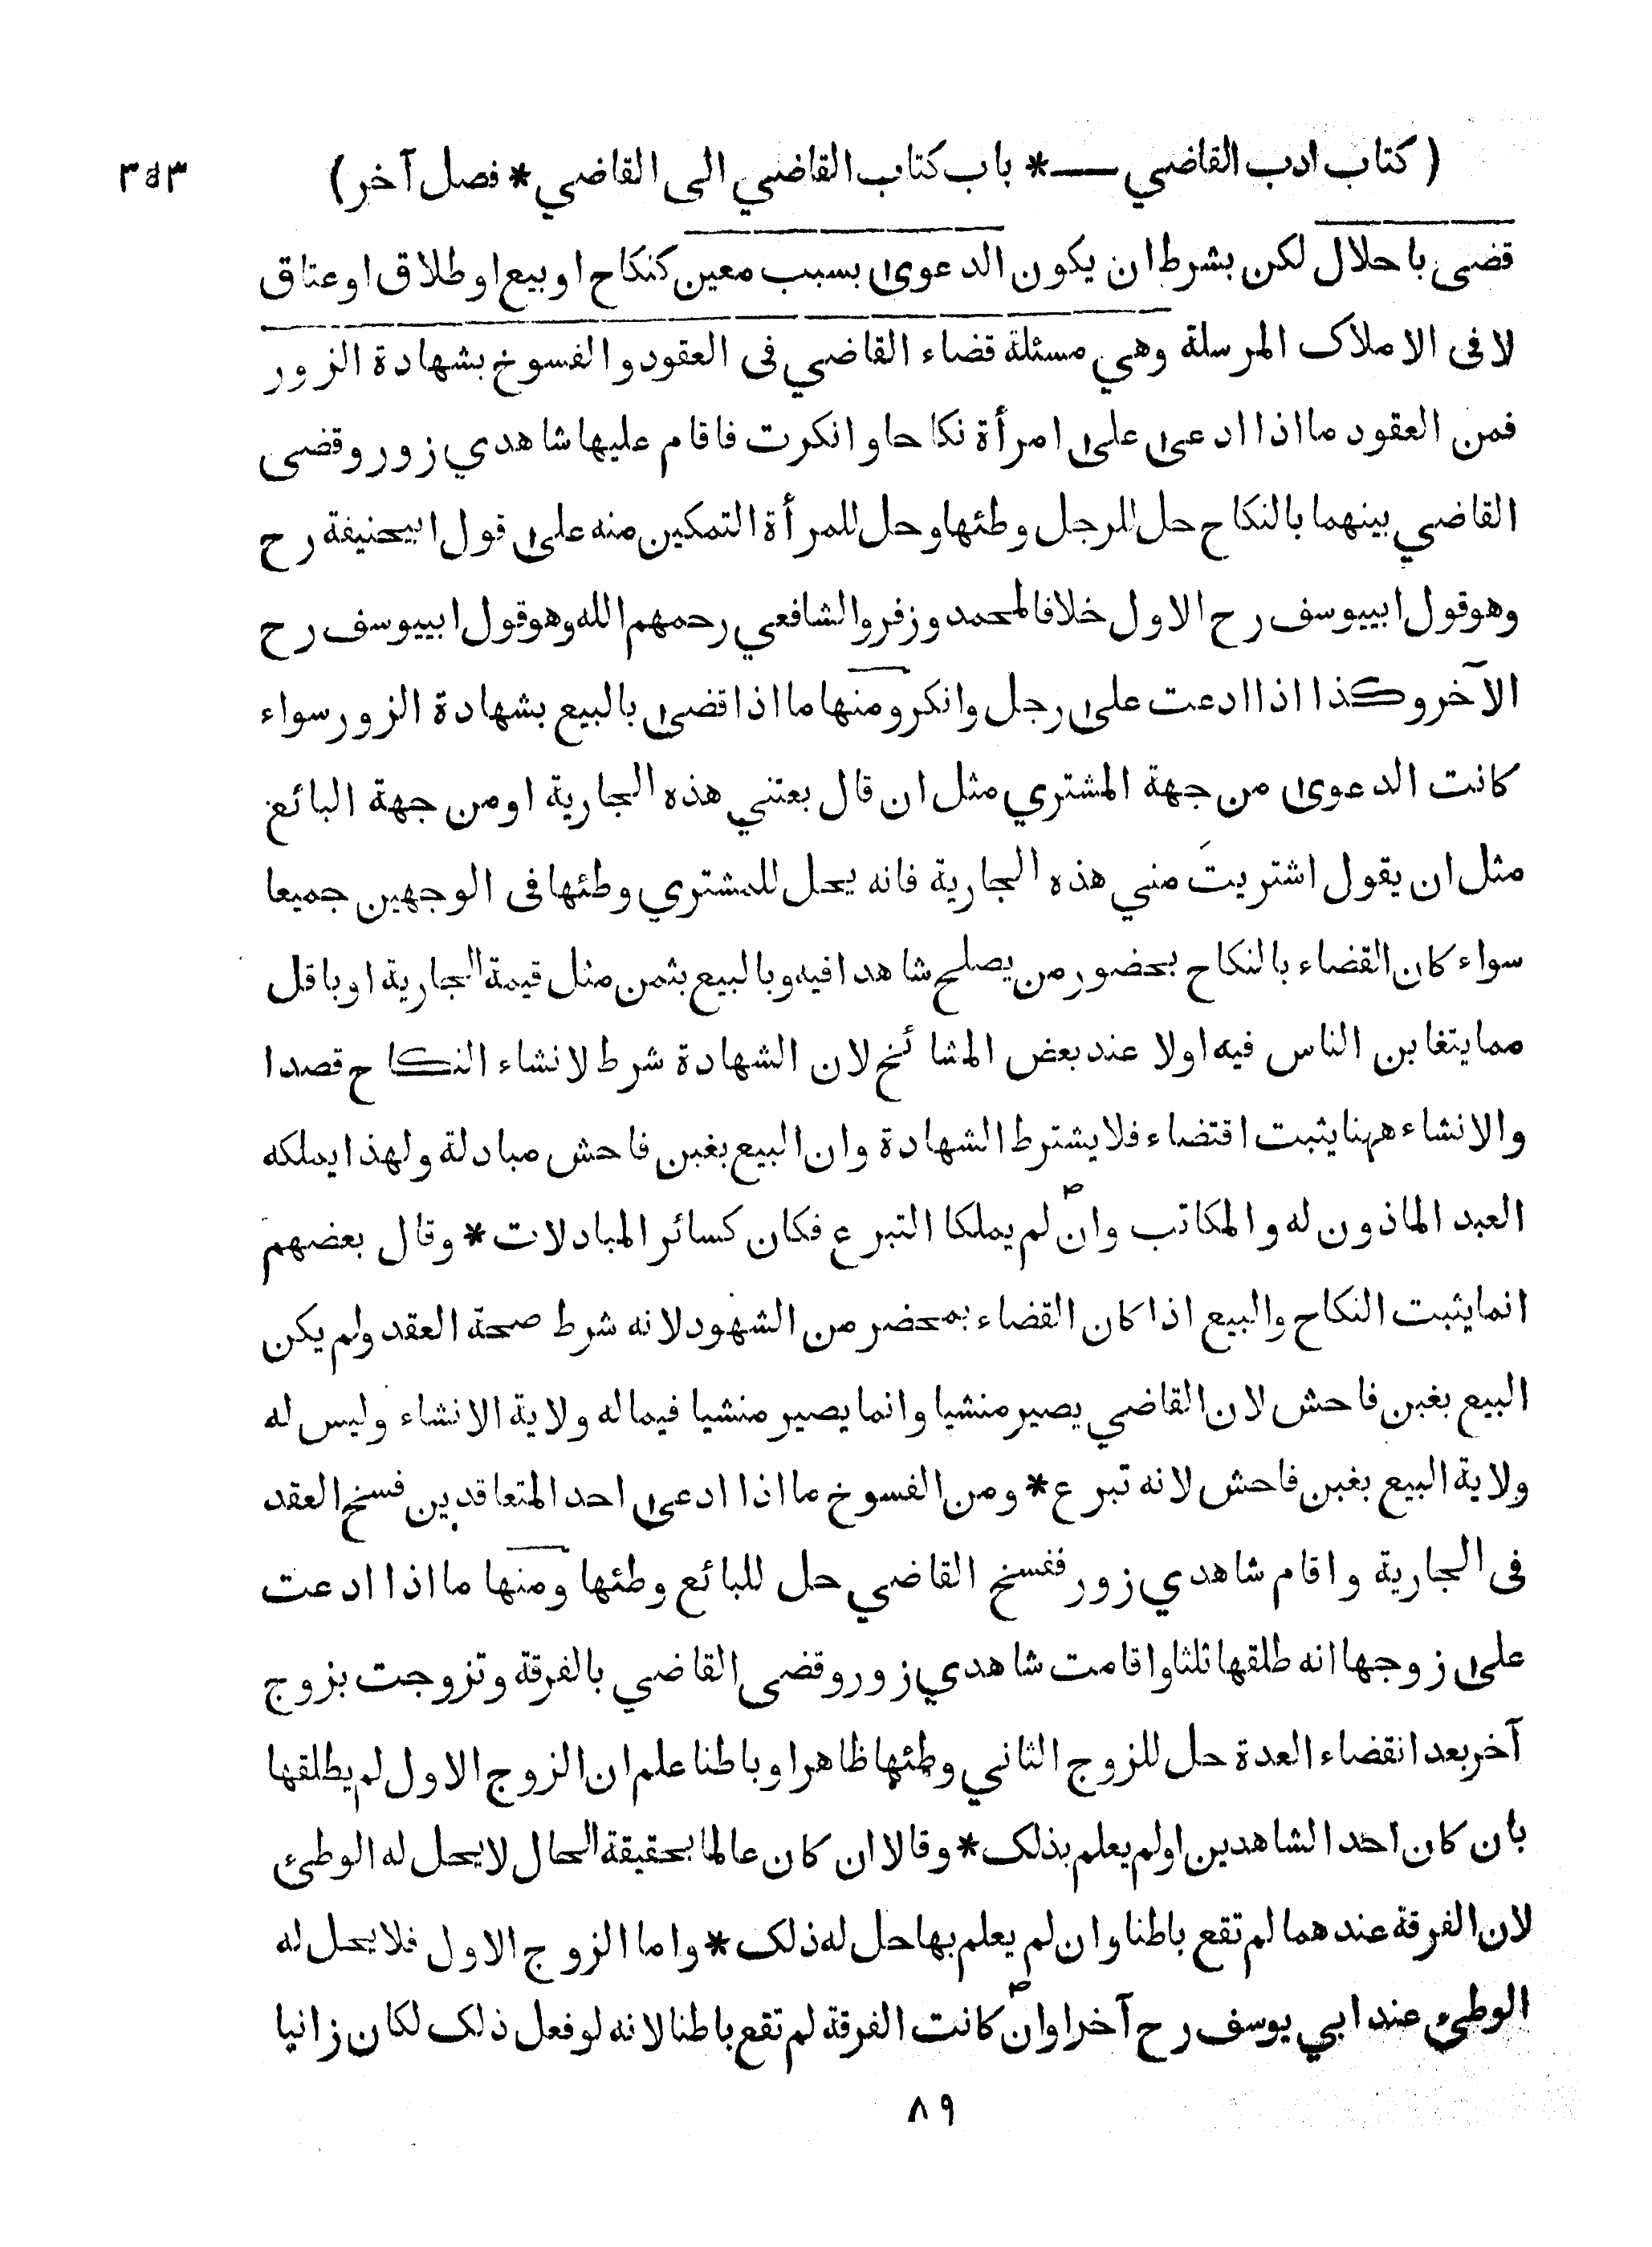 ( كتاب ادب القاضي — * باب كتاب القاضي الى القاضي * فصل آخر ) ٣٥٣
قضى باحلال لكن بشرط ان يكون الدعوى بسبب معين كنكاح او بيع او طلاق او عتاق
لا فى الاملاك المرسلة وهي مسئلة قضاء القاضي فى العقود والفسوخ بشهادة الزور
فمن العقود ما اذا ادعى على امرأة نكاحا وانكرت فاقام عليها شاهدي زور وقضى
القاضي بينهما بالنكاح حل للرجل وطئها وحل للمرأة التمكين منه على قول ابيحنيفة رح
وهو قول ابييوسف رح الاول خلافا لمحمد وزفر والشافعي رحمهم الله وهو قول ابييوسف رح
الآخر وكذا اذا ادعت على رجل وانكر ومنها ما اذا قضى بالبيع بشهادة الزور سواء
كانت الدعوى من جهة المشتري مثل ان قال بعتني هذه الجارية او من جهة البائع
مثل ان يقول اشتريتَ مني هذه الجارية فانه يحل للمشتري وطئها فى الوجهين جميعا
سواء كان القضاء بالنكاح بحضور من يصلح شاهدا فيه وبالبيع بثمن مثل قيمة الجارية او باقل
مما يتغابن الناس فيه اولا عند بعض المشائخ لان الشهادة شرط لانشاء النكاح قصدا
والانشاء ههنا يثبت اقتضاء فلا يشترط الشهادة وان البيع بغبن فاحش مبادلة ولهذا يملكه
العبد الماذون له والمكاتب وان لم يملكا التبرع فكان كسائر المبادلات * وقال بعضهم
انما يثبت النكاح والبيع اذا كان القضاء بمحضر من الشهود لانه شرط صحة العقد ولم يكن
البيع بغبن فاحش لان القاضي يصير منشيا وانما يصير منشيا فيما له ولاية الانشاء وليس له
ولاية البيع بغبن فاحش لانه تبرع * ومن الفسوخ ما اذا ادعى احد المتعاقدين فسخ العقد
فى الجارية واقام شاهدي زور ففسخ القاضي حل للبائع وطئها ومنها ما اذا ادعت
على زوجها انه طلقها ثلثا واقامت شاهدي زور وقضى القاضي بالفرقة وتزوجت بزوج
آخر بعد انقضاء العدة حل للزوج الثاني وطئها ظاهرا وباطنا علم ان الزوج الاول لم يطلقها
بأن كان احد الشاهدين اولم يعلم بذلك * وقالا ان كان عالما بحقيقة الحال لا يحل له الوطئ
لان الفرقة عندهما لم تقع باطنا وان لم يعلم بها حل له ذلك * واما الزوج الاول فلا يحل له
الوطئ عند ابي يوسف رح آخرا وان كانت الفرقة لم تقع باطنا لانه لو فعل ذلك لكان زانيا
٨٩